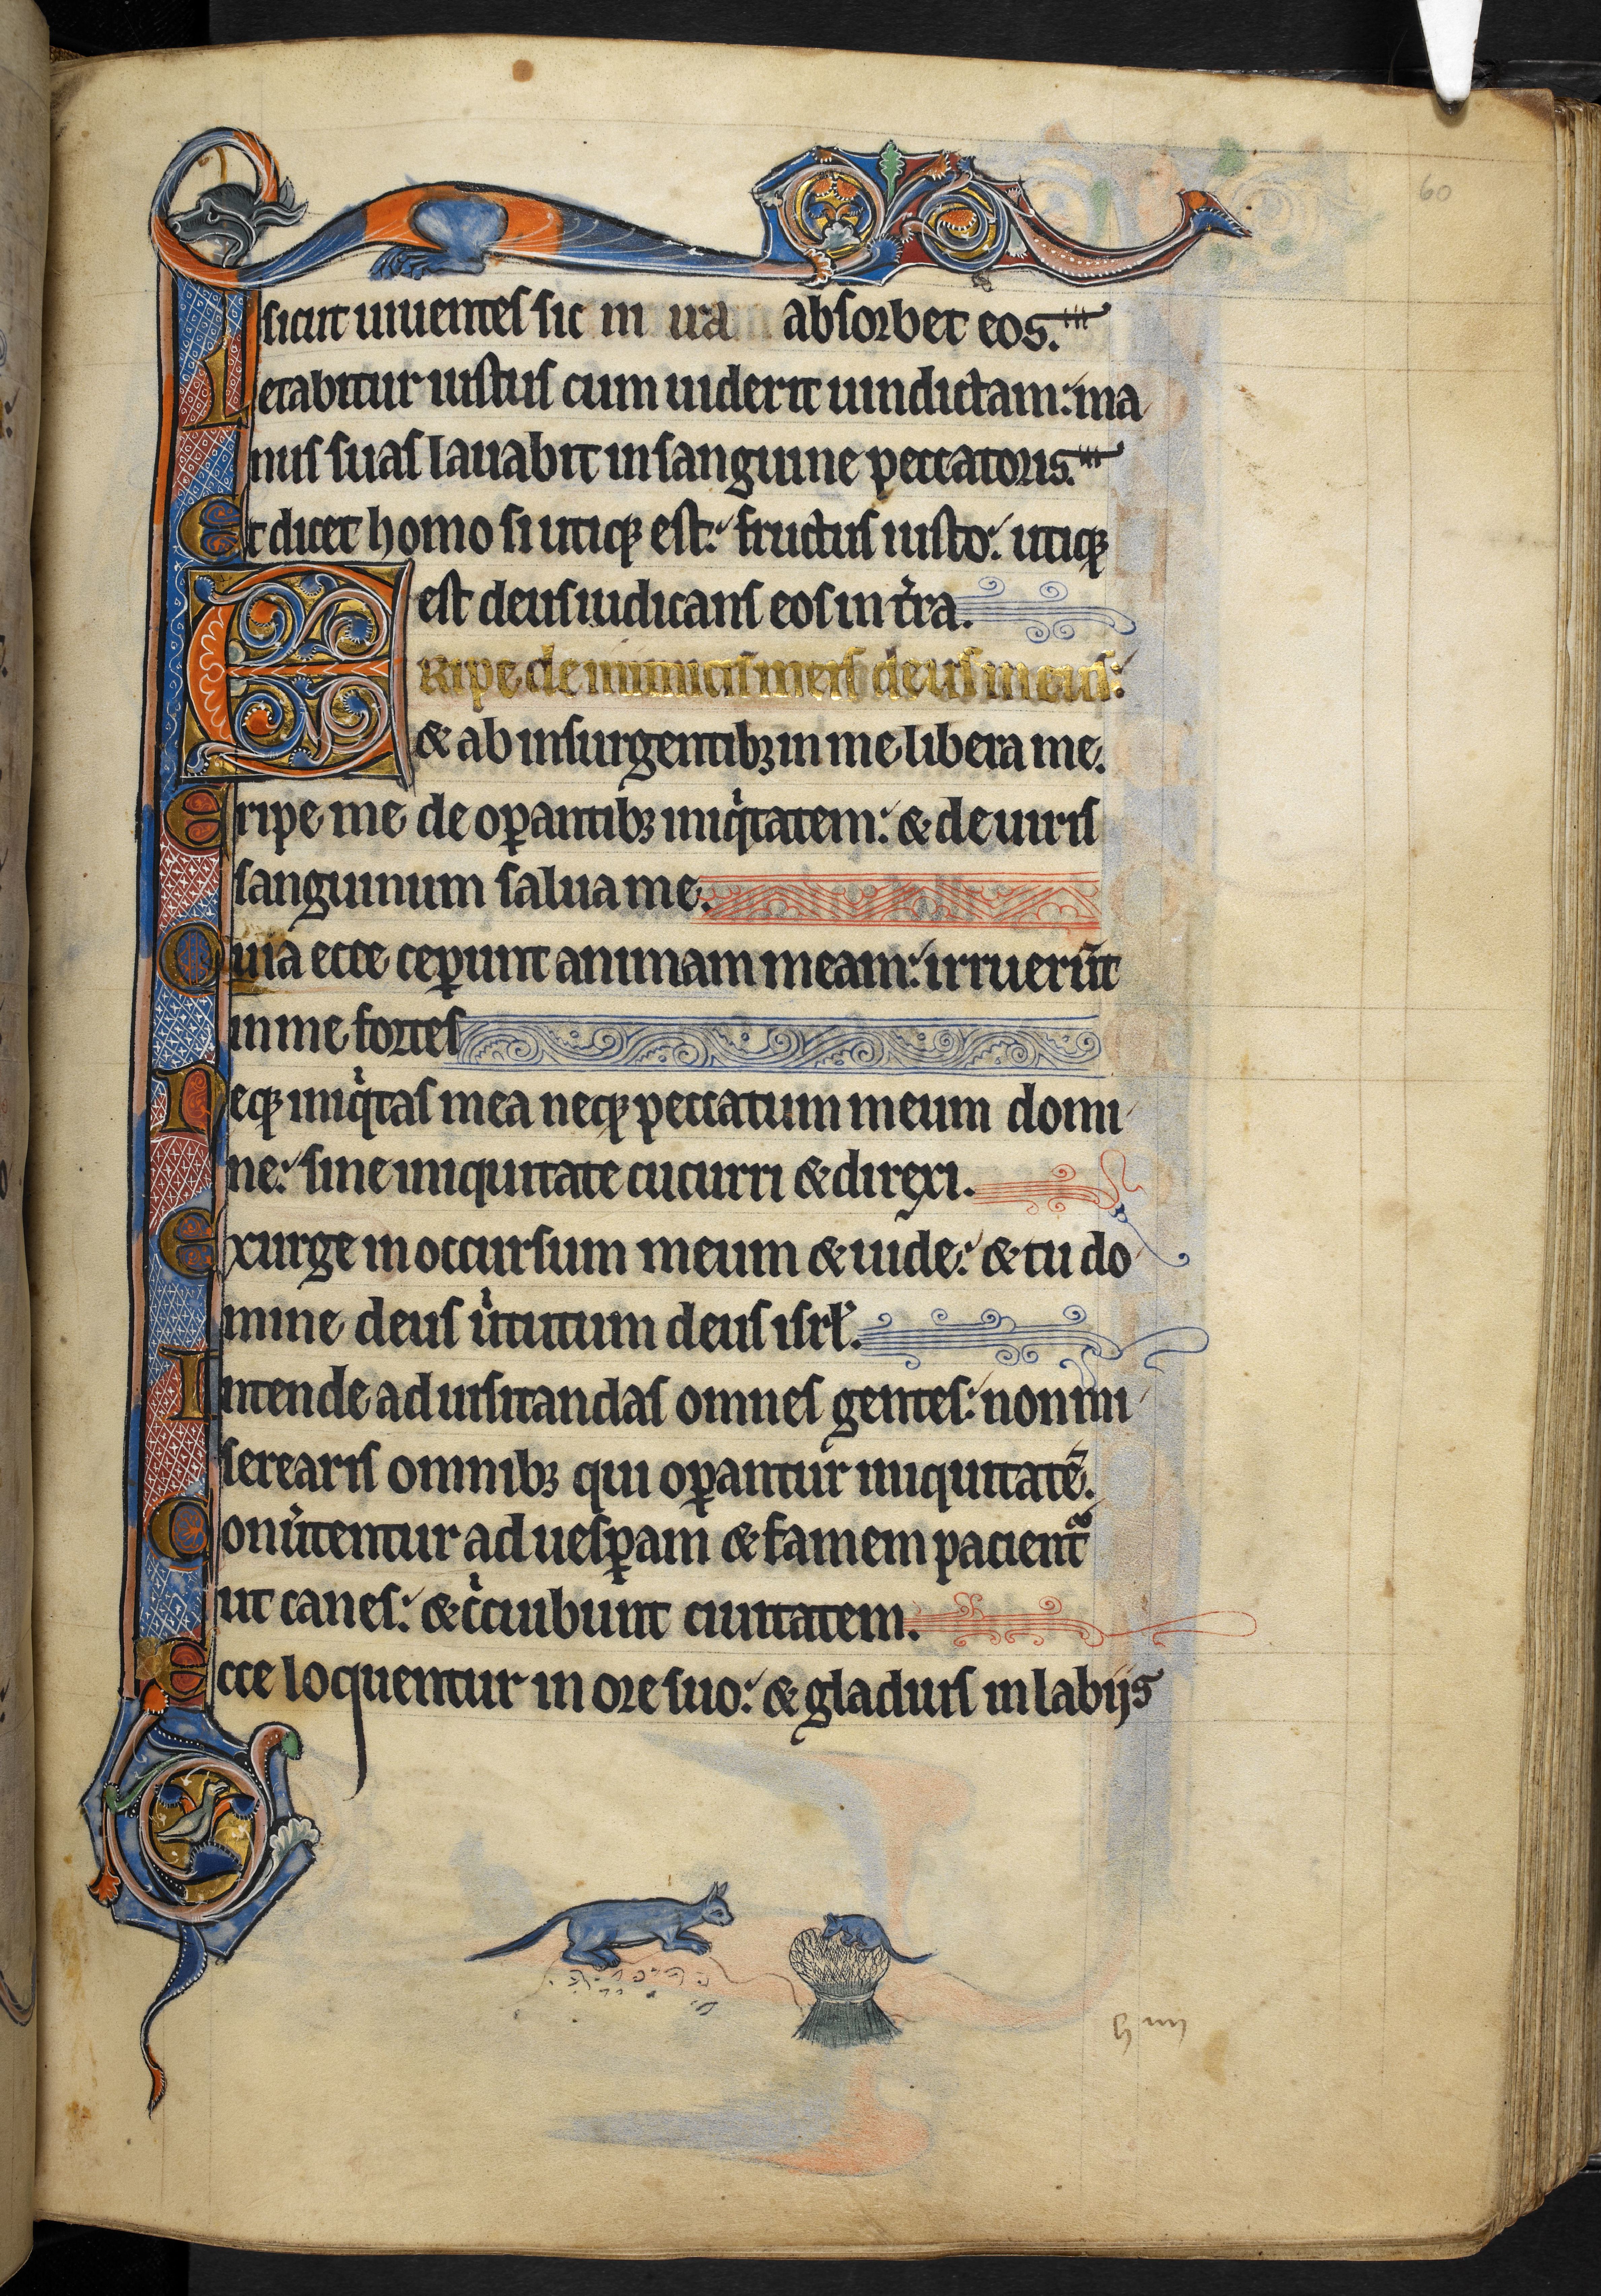 60
sicut uiuentes sic in ira absorbet eos.
Letabitur iustus cum uiderit uindictam: ma
nus suas lauabit in sanguine peccatoris.
Et dicet homo si utiqꝫ est: fructus iusto: utiqꝫ
est deus iudicans eos in tr̃ra.
ERipe de inimicis meis deus meus:
& ab insurgentibꝫ in me libera me.
Eripe me de oꝑantibꝫ iniqͥtatem: & de uiris
sanguinum salua me.
Quia ecce ceꝑunt animam meam: irruerũt
in me fortes
Neqꝫ iniqͥtas mea neqꝫ peccatum meum domi
ne: sine iniquitate cucurri & direxi.
Exurge in occursum meum & uide: & tu do
mine deus uͥtutum deus isrl̃.
Intende ad uisitandas omnes gentes: non mi
serearis omnibꝫ qui oꝑantur iniquitatẽ.
Conũtentur ad uesꝑam & famem pacientᷓ
ut canes: & cͥcuibunt ciuitatem.
Ecce loquentur in ore suo: & gladius in labijs